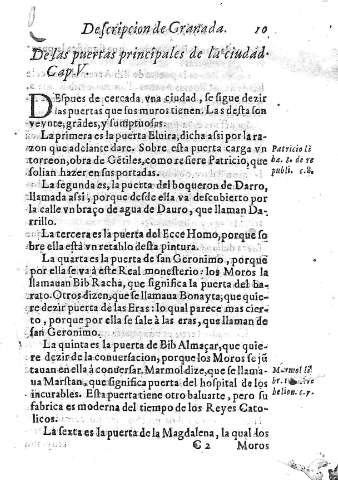 Descripcion de Granada. 10
De las puertas principales de la ciudad.
Cap. V.
DEspues de cercada vna ciudad, se sigue dezir
las puertas que sus muros tienen. Las desta son
veynte, grãdes, y sumptuosas.
La primera es la puerta Eluira, dicha assi por la ra-
zon que adelante dare. Sobre esta puerta carga vn
torreon, obra de Gẽtiles, como refiere Patricio, que
solian hazer en sus portadas.
Patricio li
ba. 8. de re
publi. c. 8.
La segunda es, la puerta del boqueron de Darro,
llamada assi, porque desde ella va descubierto por
la calle vn braço de agua de Dauro, que llaman Da-
rrillo.
La tercera es la puerta del Ecce Homo, porque so
bre ella està vn retablo desta pintura.
La quarta es la puerta de san Geronimo, porque
por ella se va à este Real monesterio: los Moros la
llamauan Bib Racha, que significa la puerta del ba-
rato. Otros dizen, que se llamaua Bonayta, que quie-
re dezir puerta de las Eras: lo qual parece mas cier-
to, porque por ella se sale à las eras, que llaman de
san Geronimo.
La quinta es la puerta de Bib Almaçar, que quie-
re dezir de la conuersacion, porque los Moros se jũ
tauan en ella à conuersar. Marmol dize, que se llama-
ua Marstan, que significa puerta del hospital de los
incurables. Esta puerta tiene otro baluarte, pero su
fabrica es moderna del tiempo de los Reyes Cato-
licos.
Marmol li
br. 1. re
belion. c. 7.
La sexta es la puerta de la Magdalena, la qual los
C 2 Moros